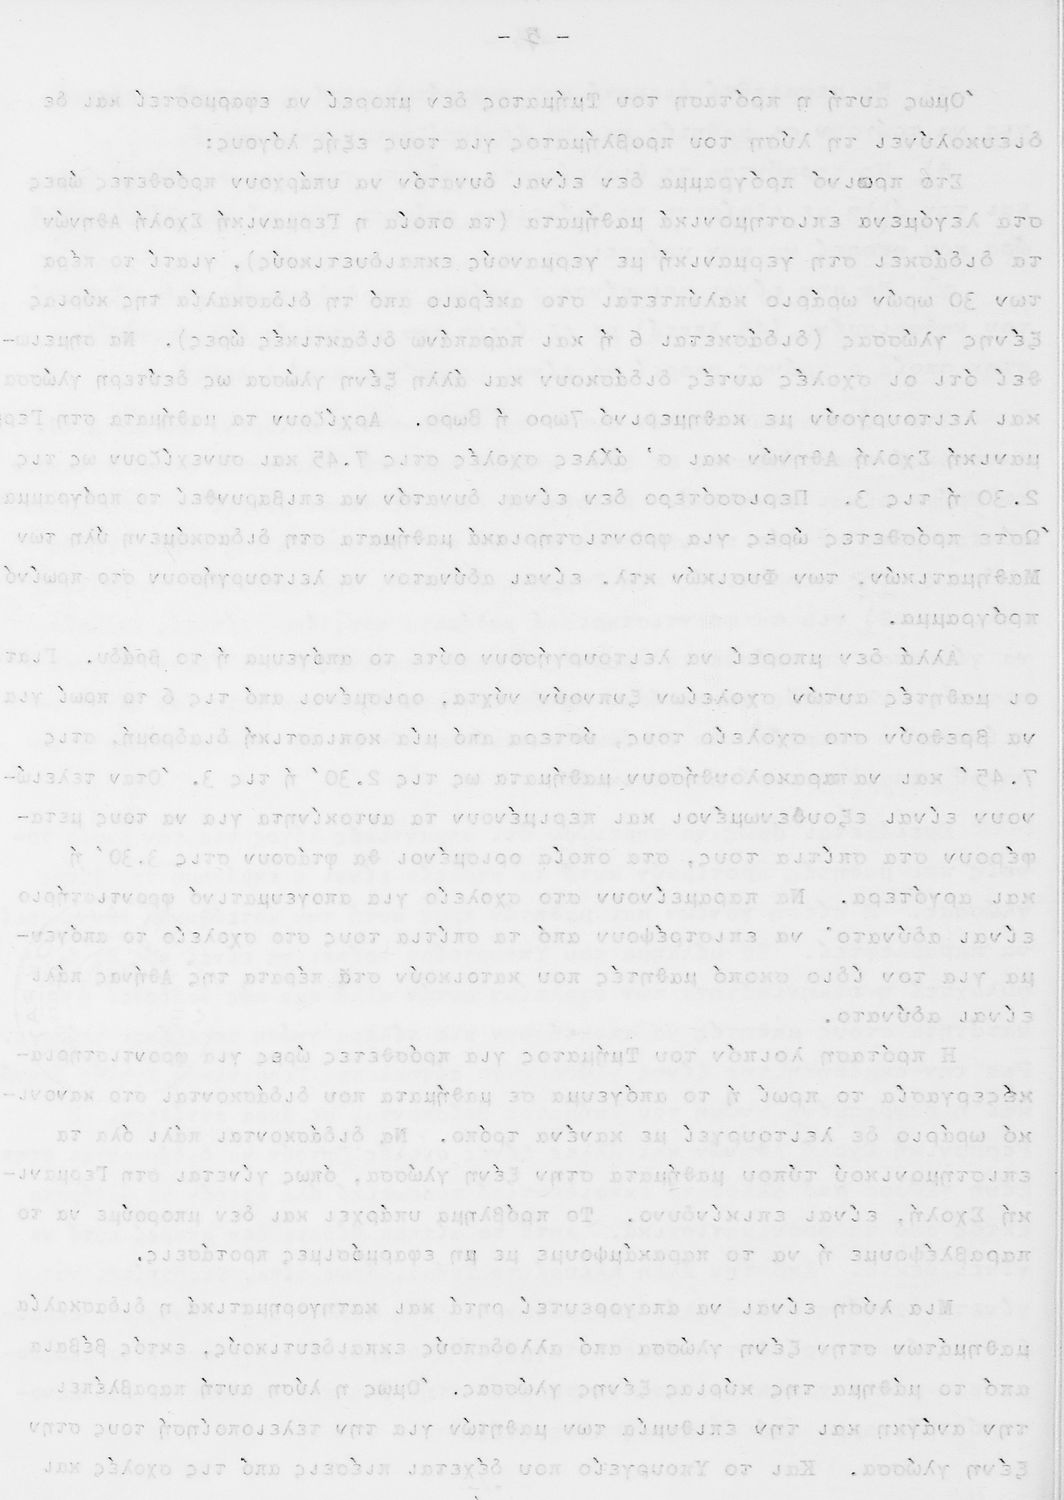 - 5 -
Όμως αυτή η πρόταση του Τμήματος δεν μπορεί να εφαρμοστεί και δε
διευκολύνει τη λύση του προβλήματος για τους εξής λόγους:
Στό πρωινό πρόγραμμα δεν είναι δυνατόν να υπάρχουν πρόσθετες ώρες
στα λεγόμενα επιστημονικά μαθήματα (τα οποία η Γερμανική Σχολή Αθηνών
τα διδάσκει στη γερμανική με γερμανούς εκπαιδυετικούς), γιατί το πέρα
των 30 ωρών ωράριο καλύπτεται στο ακέραιο από τη διδασκαλία της κύριας
ξένης γλώσσας (διδάσκεται 6 ή και παραπάνω διδακτικές ώρες). Να σημειω-
θεί ότι οι σχολές αυτές διδάσκουν και άλλη ξένη γλώσσα ως δεύτερη γλώσσα
και λειτουργούν με καθημερινό 7ωρο ή 8ωρο. Αρχίζουν τα μαθήματα στη Γερ
μανική Σχολή Αθηνών και σ' άλλες σχολές στις 7.45 και συνεχίζουν ως τις
2.30 ή τις 3. Περισσότερο δεν είναι δυνατόν να επιβαρυνθεί το πρόγραμμα
Ώστε πρόσθετες ώρες για φροντιστηριακά μαθήματα στη διδασκόμενη ύλη των
Μαθηματικών, των Φυσικών κτλ. είναι αδύνατον να λειτουργήσουν στο πρωϊνό
πρόγραμμα.
Αλλά δεν μπορεί να λειτουργήσουν ούτε το απόγευμα ή το βράδυ. Γιατ
οι μαθητές αυτών σχολείων ξυπνούν νύχτα, ορισμένοι από τις 6 το πρωί για
να βρεθούν στο σχολείο τους, ύστερα από μία κοπιαστική διαδρομή, στις
7.45' και ναπαρακολουθήσουν μαθήματα ως τις 2.30' ή τις 3. Όταν τελειώ-
νουν είναι εξουθενωμένοι και περιμένουν τα αυτοκίνητα για να τους μετα-
φέρουν στα σπίτια τους, στα οποία ορισμένοι θα φτάσουν στις 3.30' ή
και αργότερα. Να παραμείνουν στο σχολείο για απογευματινό φροντιστήριο
είναι αδύνατο· να επιστρέψουν από τα σπίτια τους στο σχολείο το απόγευ-
μα για τον ίδιο σκοπό μαθητές που κατοικούν στά πέρατα της Αθήνας πάλι
είναι αδύνατο.
Η πρόταση λοιπόν του Τμήματος για πρόσθετες ώρες για φροντιστηρια-
κέςεργασία το πρωί ή το απόγευμα σε μαθήματα που διδάσκονται στο κανονι-
κό ωράριο δε λειτουργεί με κανένα τρόπο. Να διδάσκονται πάλι όλα τα
επιστημονικού τύπου μαθήματα στην ξένη γλώσσα, όπως γίνεται στη Γερμανι-
κή Σχολή, είναι επικίνδυνο. Το πρόβλημα υπάρχει και δεν μπορούμε να το
παραβλέψουμε ή να το παρακάμψουμε με μη εφαρμόσιμες προτάσεις.
Μια λύση είναι να απαγορευτεί ρητά και κατηγορηματικά η διδασκαλία
μαθημάτων στην ξένη γλώσσα από αλλοδαπούς εκπαιδευτικούς, εκτός βέβαια
από το μάθημα της κύριας ξένης γλώσσας. Όμως η λύση αυτή παραβλέπει
την ανάγκη και την επιθυμία των μαθητών για την τελειοποίησή τους στην
ξένη γλώσσα. Και το Υπουργείο που δέχεται πιέσεις από τις σχολές και